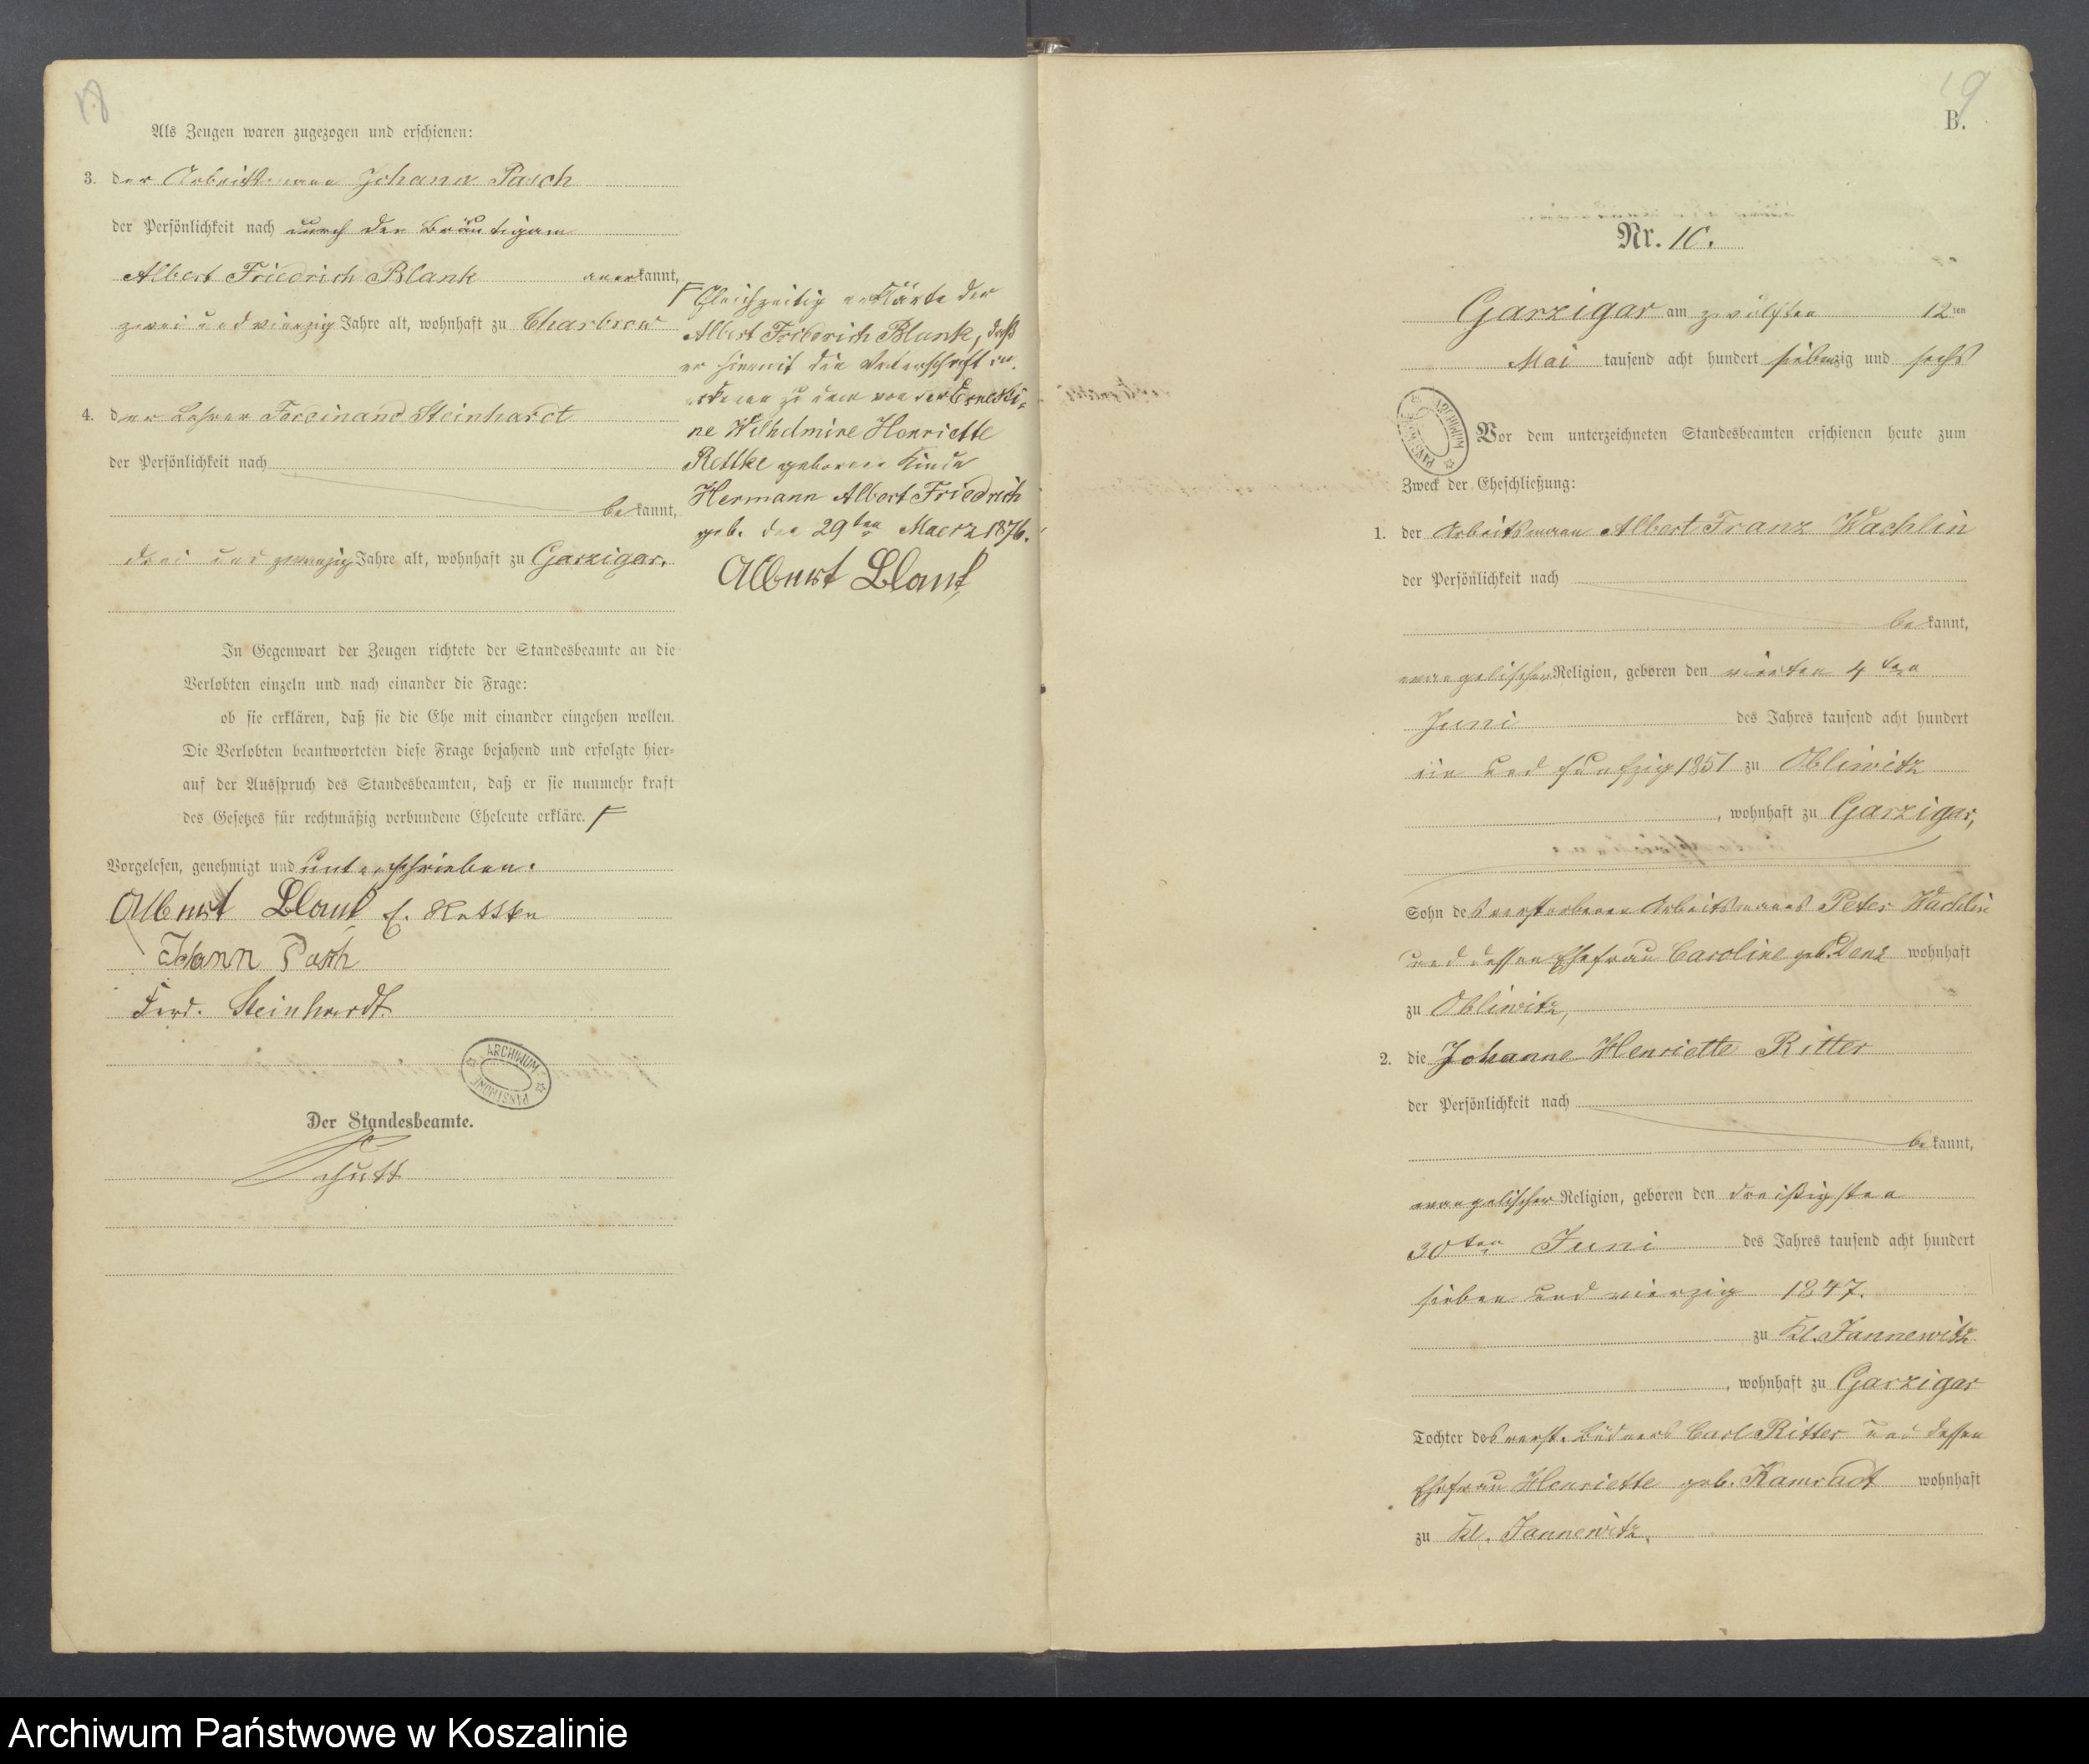 18
Als Zeugen waren zugezogen und erschienen:
3. der Arbeitsmann Johann Pasch
der Persönlichkeit nach durch den Bräutigam
Albert Friedrich Blank anerkannt,
zwei und vierzig Jahre alt, wohnhaft zu Charbrow
4. der Lehrer Ferdinand Steinhardt
der Persönlichkeit nach
bekannt,
drei und zwanzig Jahre alt, wohnhaft zu Garzigar.
In Gegenwart der Zeugen richtete der Standesbeamte an die
Verlobten einzeln und nach einander die Frage:
ob sie erklären, daß sie die Ehe mit einander eingehen wollen.
Die Verlobten beantworteten diese Frage bejahend und erfolgte hier=
auf der Ausspruch des Standesbeamten, daß er sie nunmehr kraft
des Gesetzes für rechtmäßig verbundene Eheleute erkläre. F
Vorgelesen, genehmigt und unterschrieben.
Albert Blank E. Rettke
Johann Pasch
Ferd. Steinhardt
ARCHIWUM PAŃSTWOWE
Der Standesbeamte.
Schutt
F Gleichzeitig erklärte der
Albert Friedrich Blank, daß
er hiermit die Vaterschaft an=
erkenne zu dem von der Ernesti=
ne Wilhelmine Henriette
Rettke geborenen Kinde
Hermann Albert Friedrich
geb. den 29ten Maerz 1876.
Albert Blank
19
B.
Nr. 10.
Garzigar am zwölften 12ten
Mai tausend acht hundert siebenzig und sechs
ARCHIWUM PAŃSTWOWE
Vor dem unterzeichneten Standesbeamten erschienen heute zum
Zweck der Eheschließung:
1. der Arbeitsmann Albert Franz Wachlin
der Persönlichkeit nach
bekannt,
evangelischer Religion, geboren den vierten 4ten
Juni des Jahres tausend acht hundert
ein und fünfzig 1851 zu Obliwitz
, wohnhaft zu Garzigar,
Sohn des verstorbenen Arbeitsmanns Peter Wachlin
und dessen Ehefrau Caroline geb. Denz wohnhaft
zu Obliwitz,
2. die Johanne Henriette Ritter
der Persönlichkeit nach
bekannt,
evangelischer Religion, geboren den dreißigsten
30ten Juni des Jahres tausend acht hundert
sieben und vierzig 1847.
zu Kl. Jannewitz
, wohnhaft zu Garzigar
Tochter des verst. Büdners Carl Ritter und dessen
Ehefrau Henriette geb. Kamradt wohnhaft
zu Kl. Jannewitz.
Archiwum Państwowe w Koszalinie